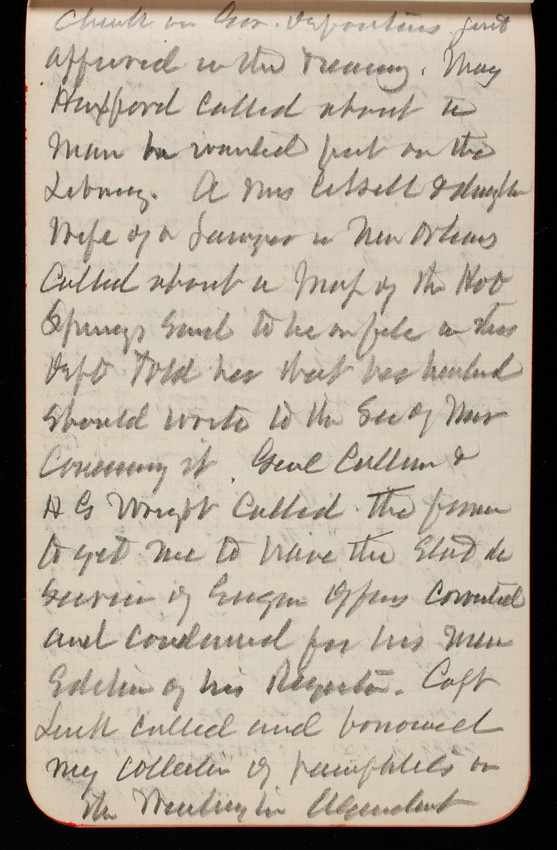 Check on Gov. Depositors just
in the Treasury. Maj
Huxford called about a
Man he wanted put on the
Library. A Mrs & daughter
Wife of a Lawyer in New Orleans
Called about a Map of the Hot
Springs Said to be on file in this
Dept Told her that her husband
should write to the Sec of War
Concerning it. Genl Cullum &
H G Wright Called. The former
to get me to have the Etat de
Service of Engin Officers corrected
and condensed for his New
Edition of his Register. Capt
called and borrowed
my collection of pamphlets on
the Washington